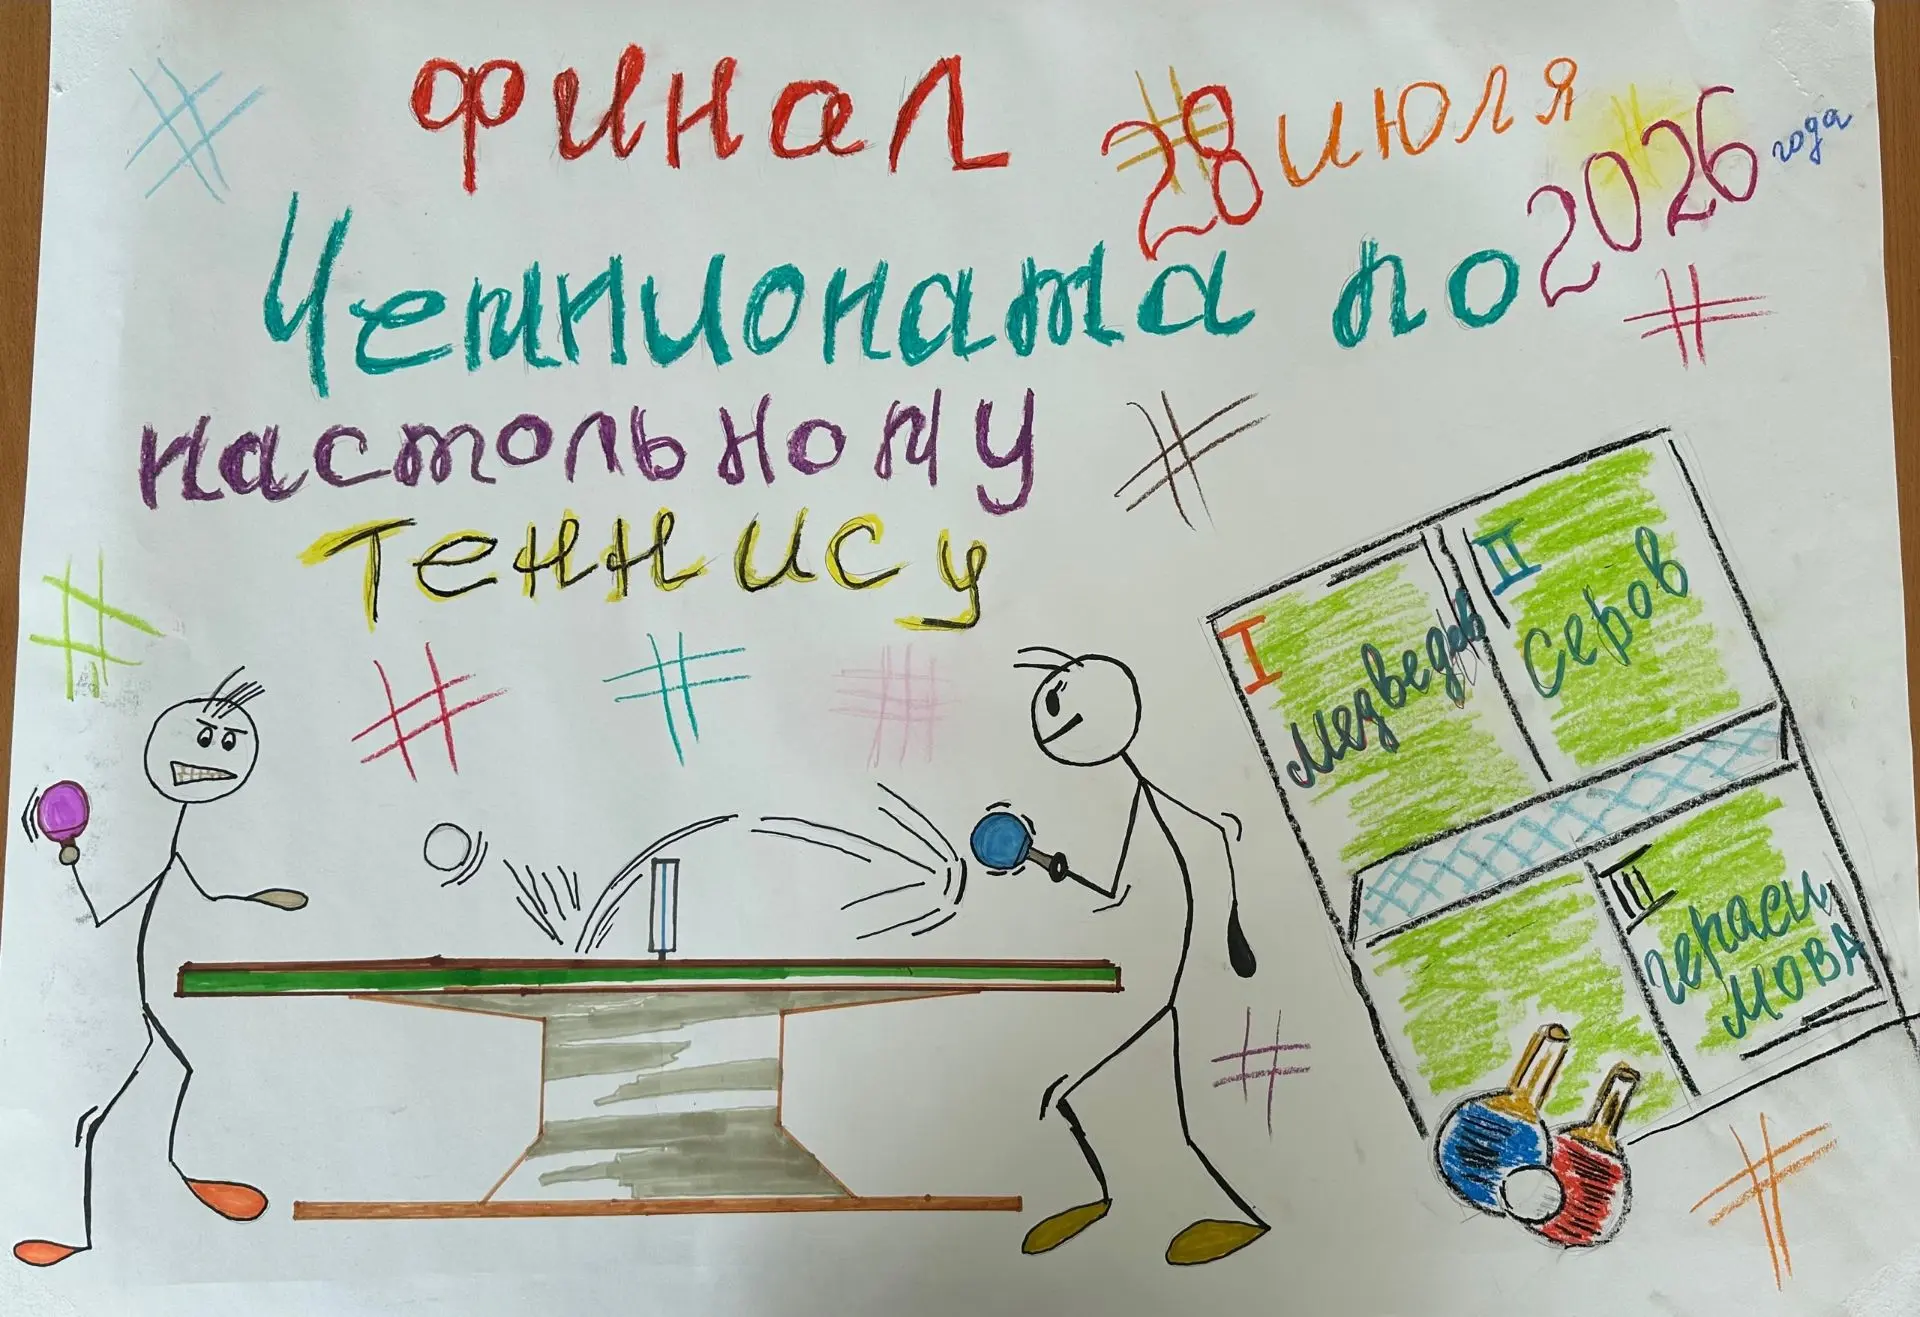 Финал
28 июля
2026 года
Чемпионата по
настольному
теннису
I
Медведев
II
Серов
III
Гераси
мова